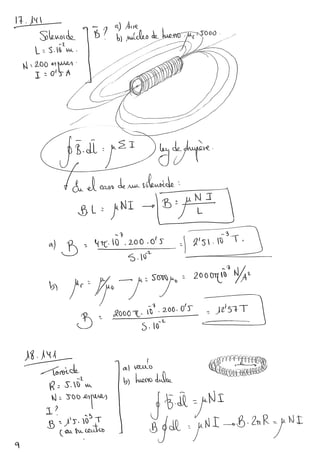 17.141
Solenoide
L = 5.10⁻² m.
N = 200 espiras
I = 0'5 A
B̄?
a) Aire
b) núcleo de hierro μr = 5000
∮ B̄·dl̄ = μ Σ I
ley de Ampère.
En el caso de un solenoide:
BL = μNI → B = μNI / L
a) B = 4π.10⁻⁷.200.0'5 / 5.10⁻² = 2'51.10⁻³ T.
b) μr = μ/μ₀ → μ = 5000μ₀ = 2000π10⁻⁷ N/A²
B = 2000π.10⁻⁷.200.0'5 / 5.10⁻² = 12'57 T
18.141
Toroide
R = 5.10⁻² m
N = 500 espiras
I?
B = 1'5.10⁻³ T
(en su centro)
a) vacío
b) hierro dulce
∮ B̄·dl̄ = μNI
B ∮ dl = μNI → B.2πR = μNI
9